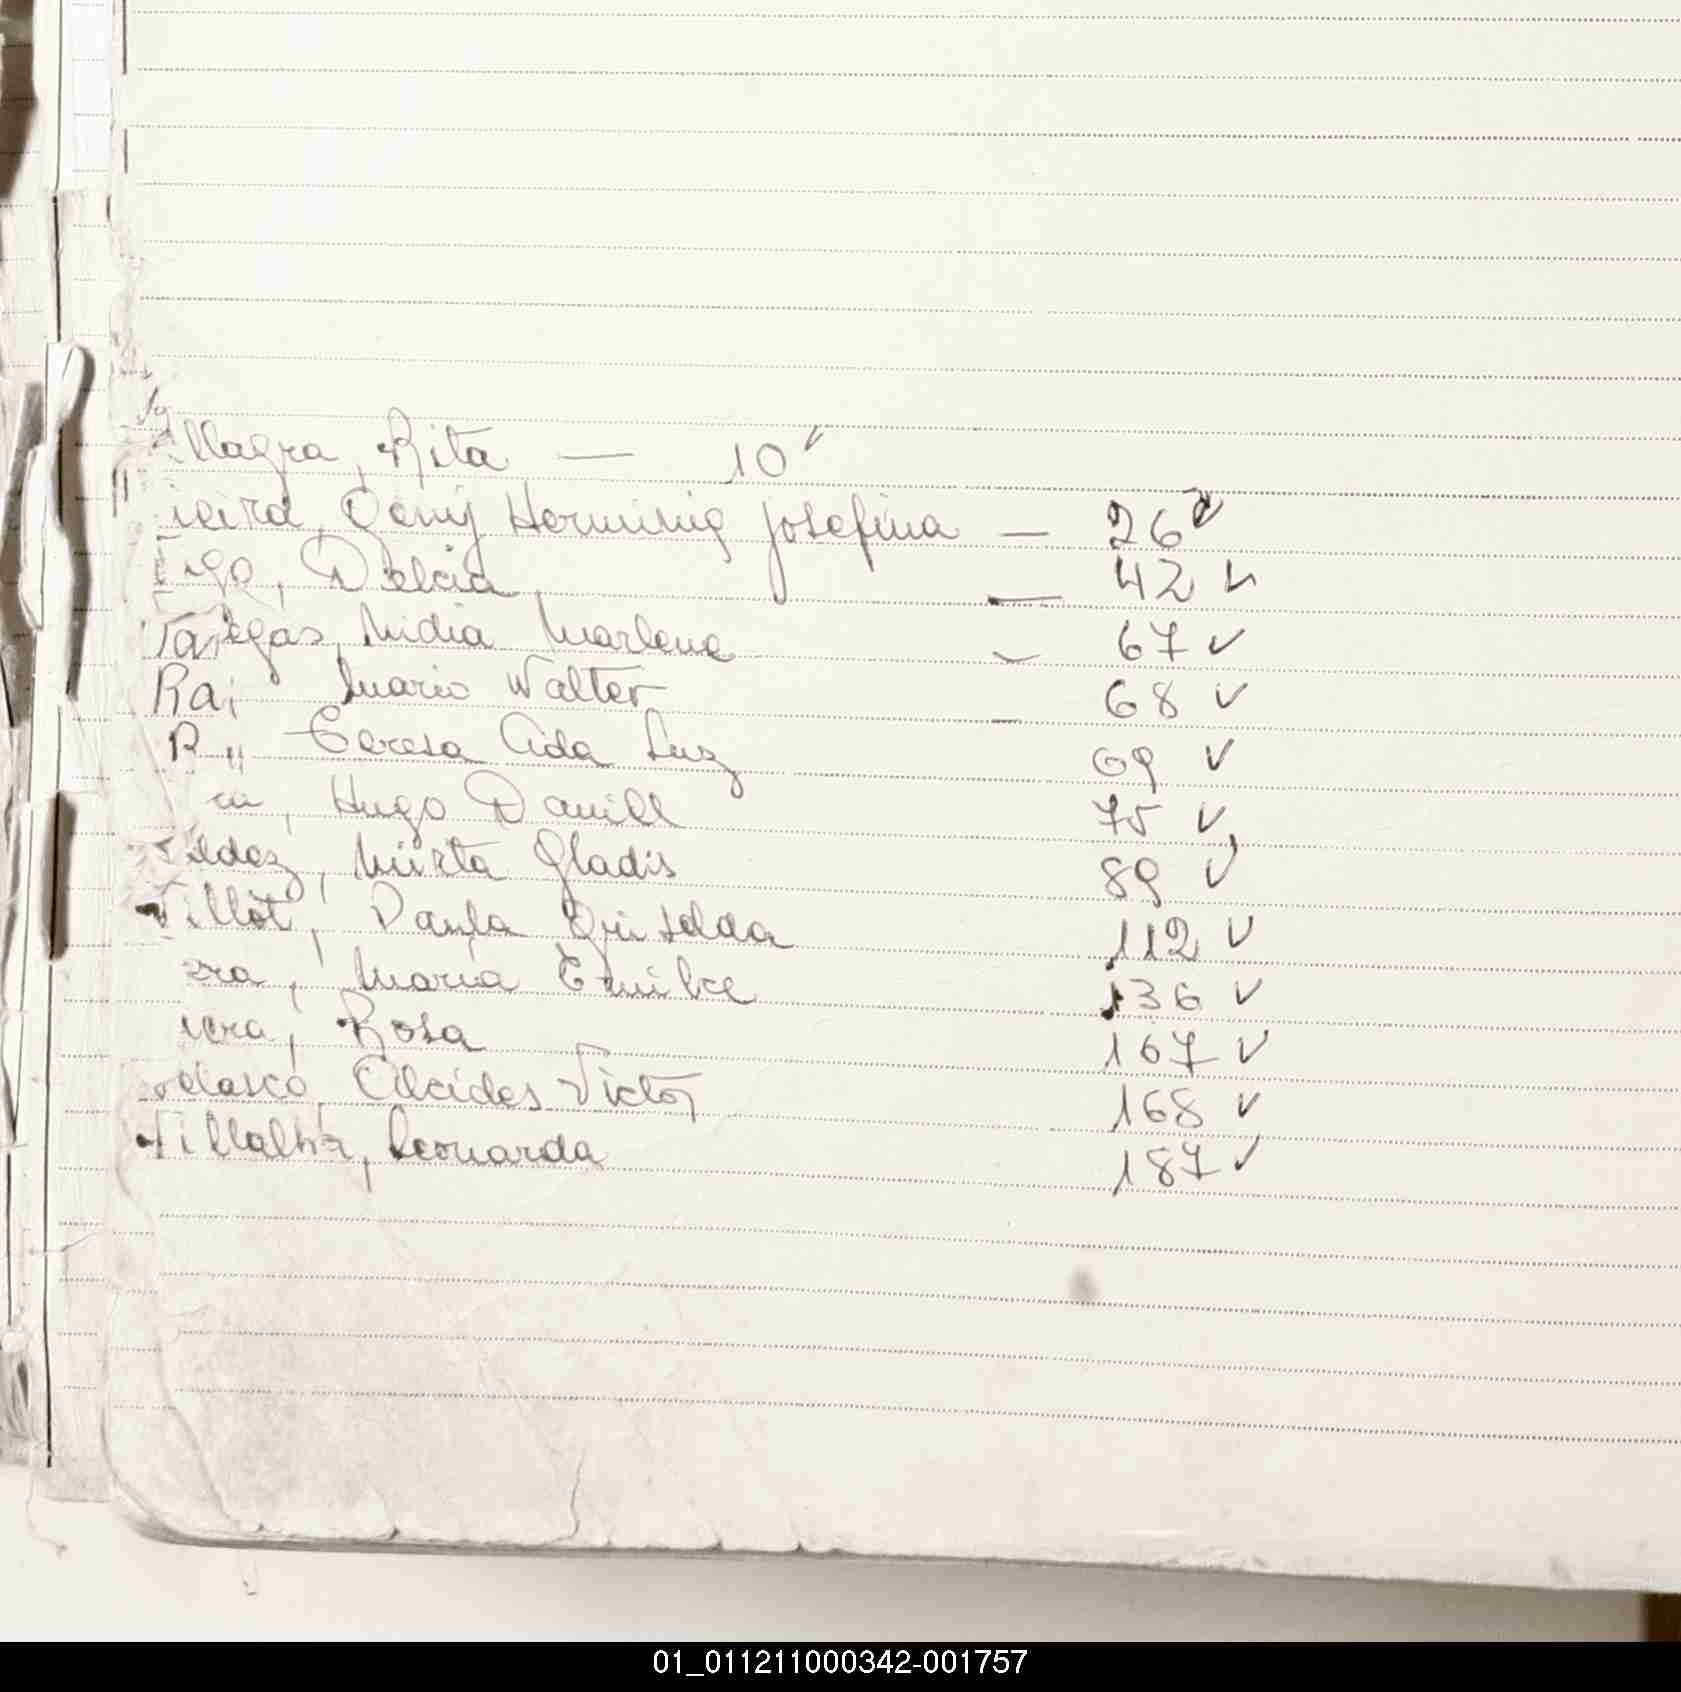 illagra, Rita — 10 ✓
ieira, Deny Herminia Josefina — 26 ✓
Delcia — 42 ✓
Nidia Marlene — 67 ✓
Mario Walter — 68 ✓
" Teresa Aida Luz 69 ✓
Hugo Daniel 75 ✓
aldez, Mirta Gladis 89 ✓
Villot, Paula Griselda 112 ✓
era, Maria Emilce 136 ✓
iera, Rosa 167 ✓
elasco, Alcides Victor 168 ✓
Villalba, Leonarda 187 ✓
01_011211000342-001757